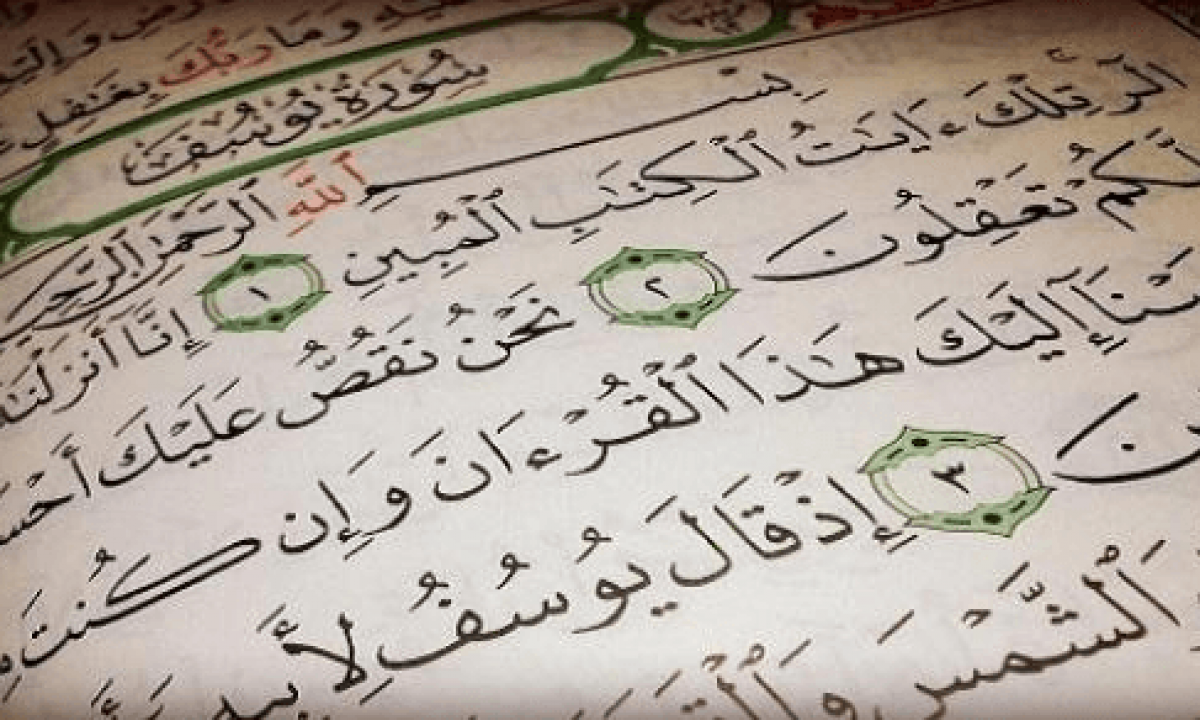 وَمَا رَبُّكَ بِغَٰفِلٍ
سُورَةُ يُوسُفَ
بِسْمِ ٱللَّهِ ٱلرَّحْمَٰنِ ٱلرَّحِيمِ
الٓر تِلْكَ ءَايَٰتُ ٱلْكِتَٰبِ ٱلْمُبِينِ ١ إِنَّآ أَنزَلْنَٰهُ
لَّكُمْ تَعْقِلُونَ ٢ نَحْنُ نَقُصُّ عَلَيْكَ أَحْسَ
يْنَآ إِلَيْكَ هَٰذَا ٱلْقُرْءَانَ وَإِن كُنتَ
ينَ ٣ إِذْ قَالَ يُوسُفُ لِأَبِيهِ
ٱلشَّمْسَ وَٱلْقَمَرَ